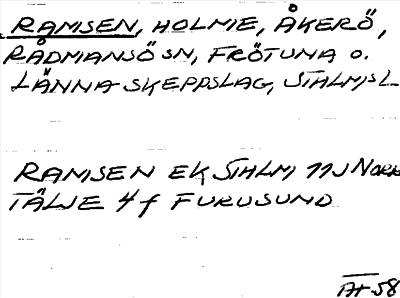 RAMSEN, HOLME, ÅKERÖ,
RÅDMANSÖ SN, FRÖTUNA O.
LÄNNA SKEPPSLAG, STHLMS L
RAMSEN EK STHLM 11J NORR
TÄLJE 4f FURUSUND
AF 58